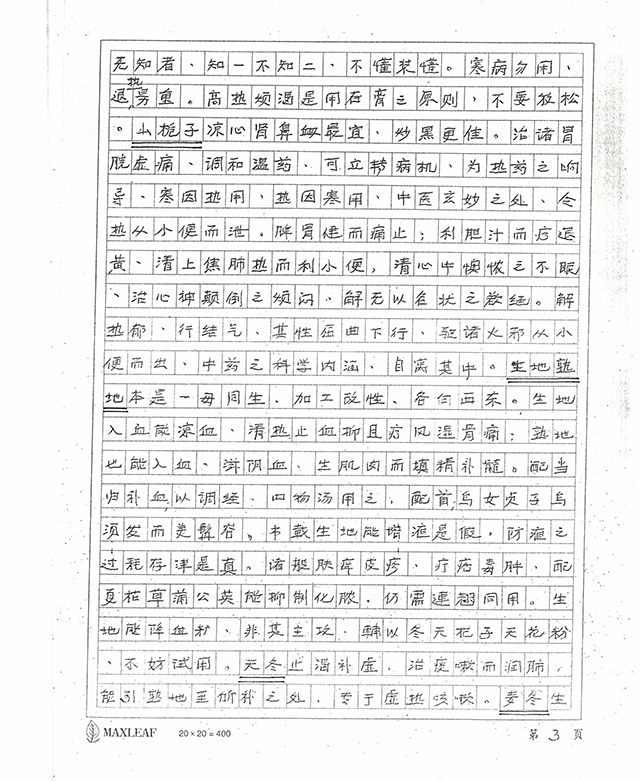 无知者、知一不知二、不懂装懂。寒病勿用、
退热勇重。高热烦渴是用石膏之原则，不要放松
。山栀子凉心肾鼻衄最宜、炒黑更佳。治诸胃
脘虚痛、调和温药、可立转病机、为热药之响
导、寒因热用、热因寒用、中医玄妙之处、令
热从小便而泄、脾胃健而痛止；利胆汁而疗退
黄、清上焦肺热而利小便，清心中懊憹之不眠
、治心神颠倒之烦闷、解无以名状之。解
热郁、行结气、其性屈曲下行、驱诸火邪从小
便而出、中药之科学内涵、自寓其中。生地熟
地本是一母同生、加工改性、各自西东。生地
入血能凉血、清热止血抑且疗风湿骨痛；熟地
也能入血、滋阴血、生肌肉而填精补髓。配当
归补血以调经、四物汤用之，配首乌女贞子乌
须发而美髯容。书载生地能增液是假，防液之
过耗存津是真。诸般肤痒皮疹、疗疮毒肿、配
夏枯草蒲公英能抑制化脓、仍需連翘同用。生
地能降血糖、非其主攻、輔以冬天花子天花粉
、不妨试用。天冬止渴补虚，治痰嗽而润肺，
能引熟地至所补之处、专于虚热咳嗽。麦冬生
MAXLEAF 20×20=400 第 3 页